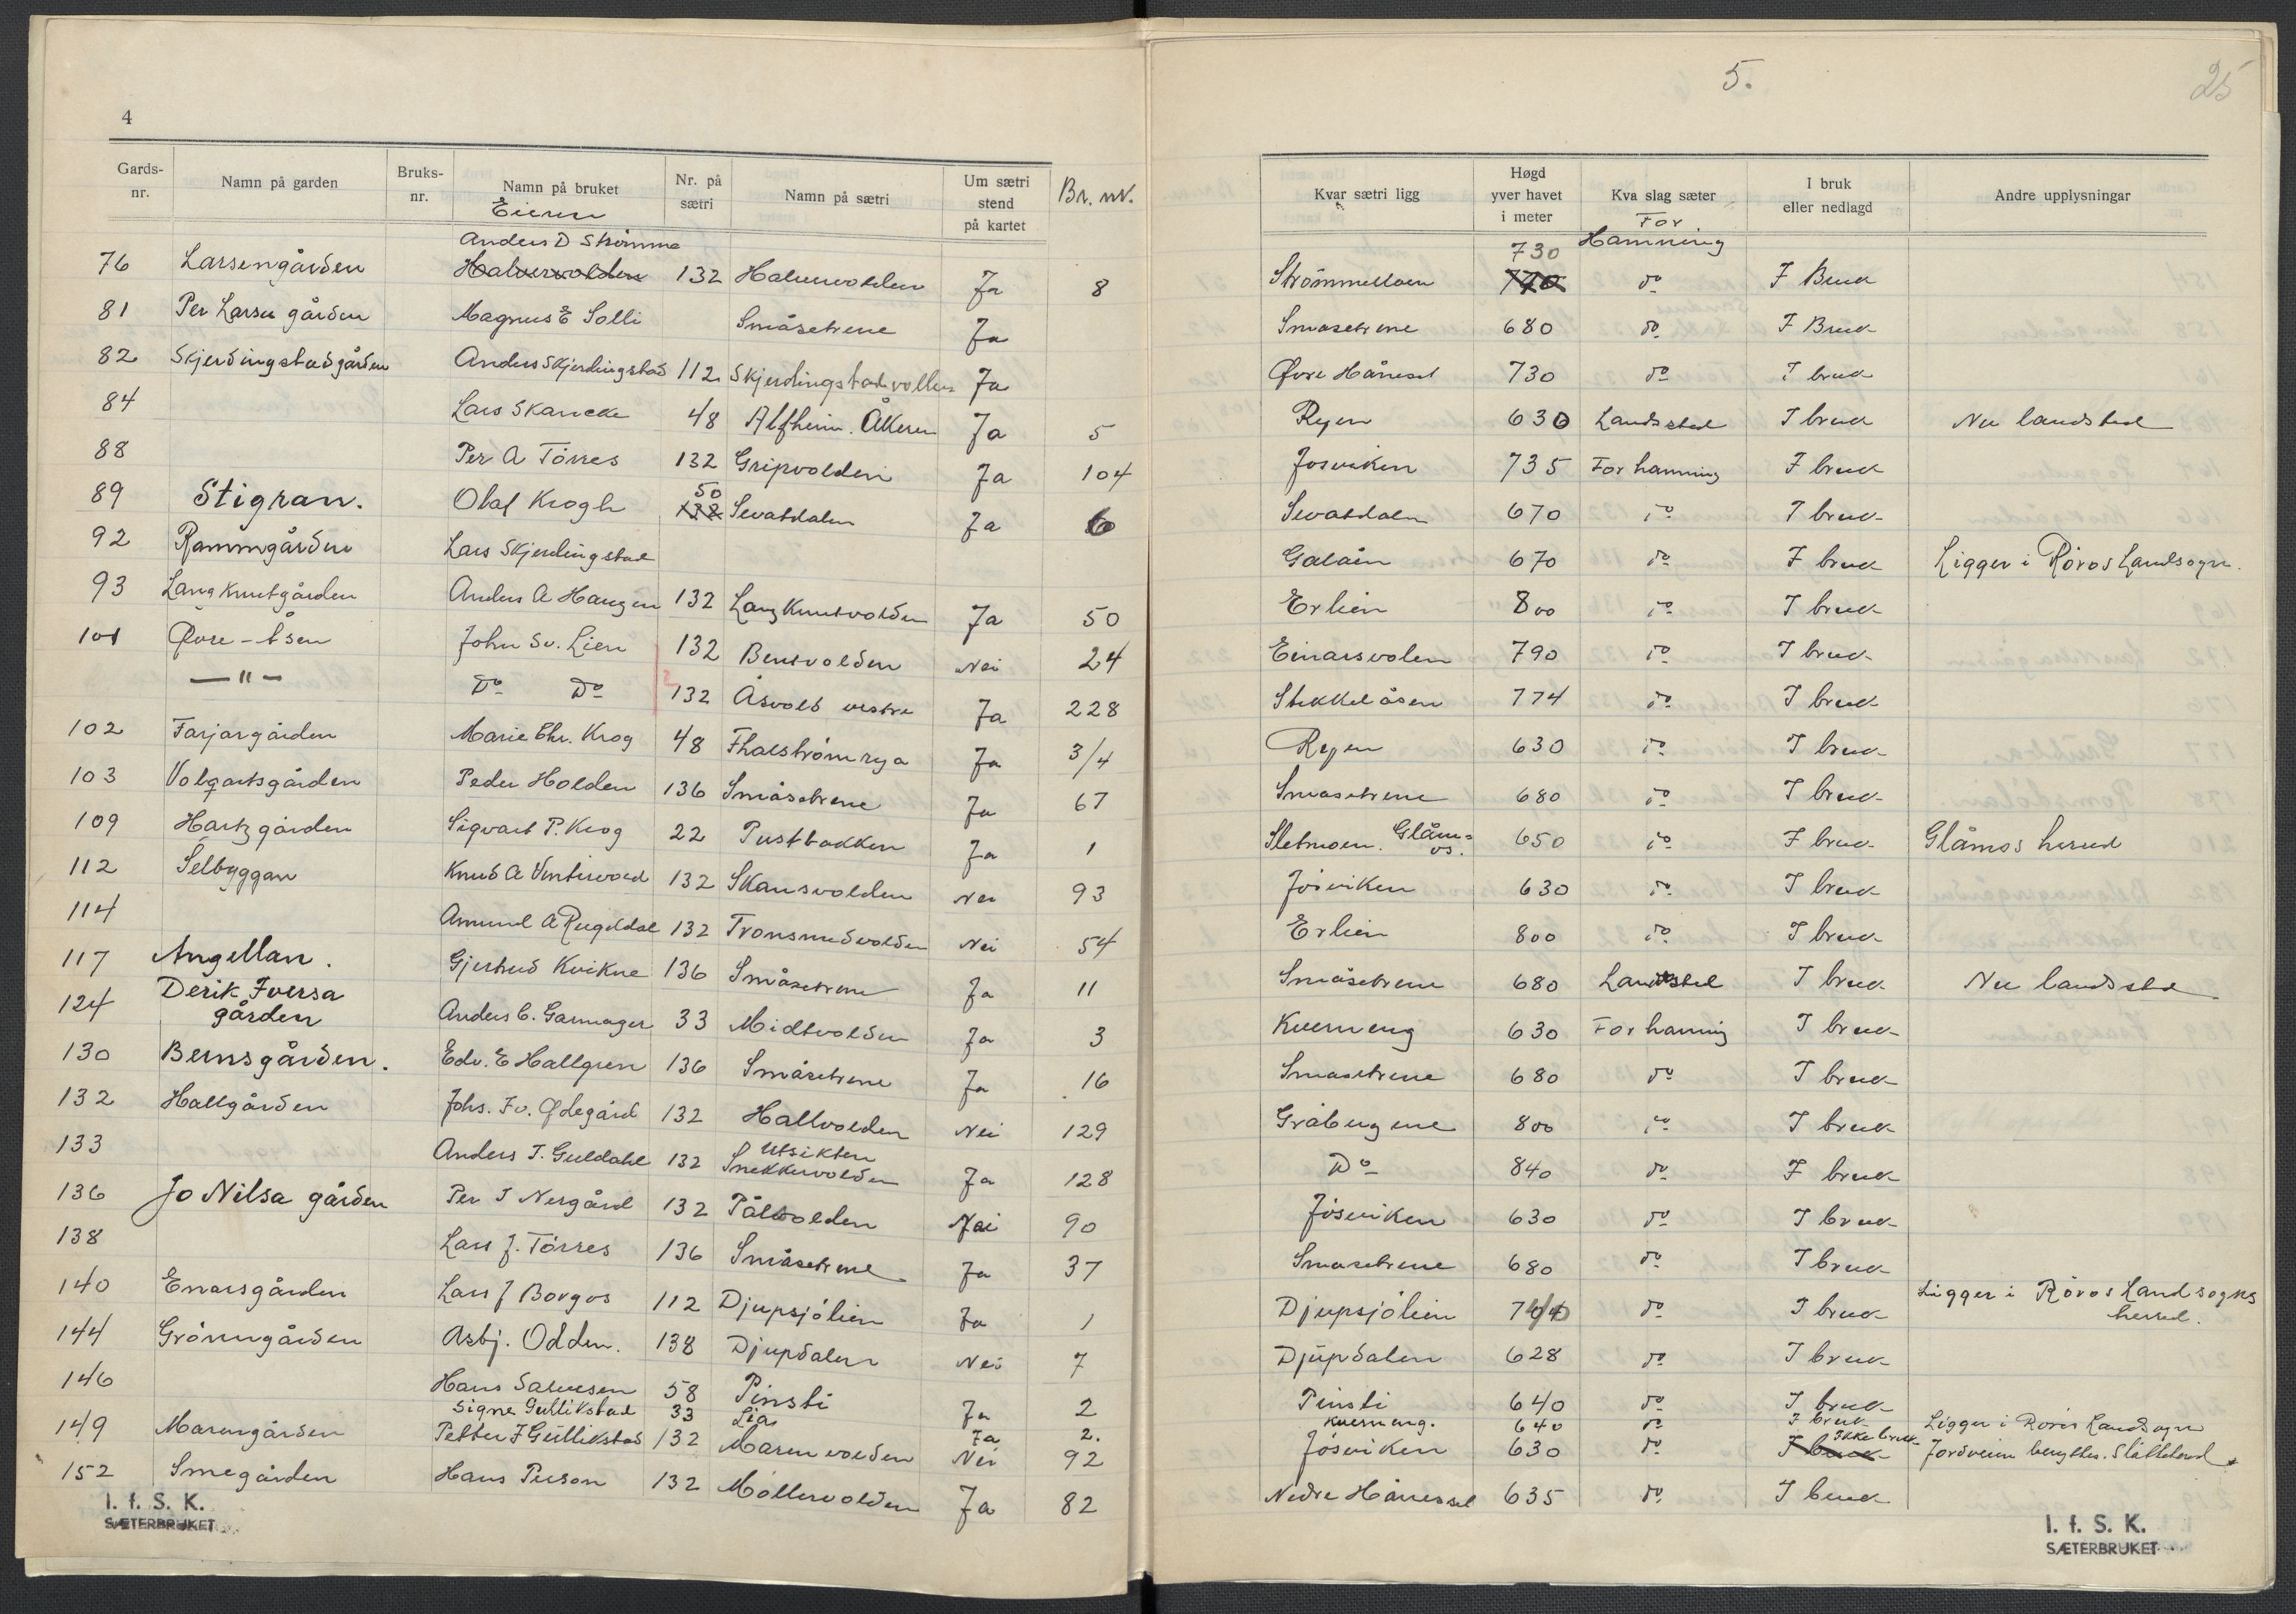 4
Gards-nr. Namn på garden Bruks-nr. Namn på bruket Eieren Nr. på sætri Namn på sætri Um sætri stend på kartet Br. nr.
Anders D Strömme
76 Larsengården Halvorvolden 132 Halvorvolden Ja 8
81 Per Larsa gården Magnus E Solli Småsetrene Ja
82 Skjerdingstadgården Anders Skjerdingstad 112 Skjerdingstadvollen Ja
84 Lars Skancke 48 Alfheim. Åkeren Ja 5
88 Per A Törres 132 Gripvolden Ja 104
50
89 Stigran. Olaf Krogh 132 Sevatdalen Ja 6
92 Rammgården Lars Skjerdingstad
93 Langknutgården Anders A Haugen 132 Langknutvolden Ja 50
101 Øvre-Åsen John Sv. Lien 132 Bensvolden Nei 24
— " — Do Do 132 Åsvold vestre Ja 228
102 Farjargården Marie Chr. Krog 48 Fhalströmrya Ja 3/4
103 Volqartsgården Peder Holden 136 Småsetrene Ja 67
109 Hartzgården Sigvart P. Krog 22 Pustbakken Ja 1
112 Selbyggan Knud A Vintervold 132 Skansvolden Nei 93
114 Amund A Rugeldal 132 Tronsmedvolden Nei 54
117 Angellan. Gjertrud Kvikne 136 Småsetrene Ja 11
124 Derik Iversa gården Anders C. Garmager 33 Midtvolden Ja 3
130 Bernsgården. Edv. E Hallgren 136 Småsetrene Ja 16
132 Hallgården Johs. Iv. Ødegård 132 Hallvolden Nei 129
133 Anders T. Guldahl 132 Utsikten Snekkervolden Ja 128
136 Jo Nilsa gården Per J Nergård 132 Pålvolden Nei 90
138 Lars J. Törres 136 Småsetrene Ja 37
140 Enarsgården Lars J Borgos 112 Djupsjölien Ja 1
144 Grönngården Asbj. Odden. 138 Djupdalen Nei 7
146 Hans Salvesen 58 Pinsti Ja 2
Signe Gullikstad 33 Lia Ja 2.
149 Marengården Petter J Gullikstad 132 Marenvolden Nei 92
152 Smegården Hans Person 132 Möllervolden Ja 82
I. f. S. K.
SÆTERBRUKET
5.
25
Kvar sætri ligg Høgd yver havet i meter Kva slag sæter I bruk eller nedlagd Andre upplysningar
730 For Hamning
Strömmevoldn 770 do I Bruk
Småsetrene 680 do I Bruk
Øvre Håneset 730 do I bruk
Ryen 630 Landsted I bruk Nu landsted
Josviken 735 For hamning I bruk
Sevatdalen 670 do I bruk
Galåen 670 do I bruk Ligger i Röros Landsogn.
Erlien 800 do I bruk
Einarsvolen 790 do I bruk
Stekkelåsen 774 do I bruk
Ryen 630 do I bruk
Småsetrene 680 do I bruk
Sletmoen. Glåmos. 650 do I bruk Glåmos herred
Jösviken 630 do I bruk
Erlien 800 do I bruk
Småsetrene 680 Landsted I bruk Nu landsted
Kverneng 630 For hamning I bruk
Småsetrene 680 do I bruk
Gråbergene 800 do I bruk
Do 840 do I bruk
Jösviken 630 do I bruk
Småsetrene 680 do I bruk
Djupsjölien 740 do I bruk Ligger i Röros Landsogns herred.
Djupdalen 628 do I bruk
Pinsti 640 do I bruk
Kverneng. 640 do I bruk Ligger i Röros Landsogn
Jösviken 630 do I bruk Ikke bruk Jordveien benyttes. Slåtteland
Nedre Hånesset 635 do I bruk
I. f. S. K.
SÆTERBRUKET